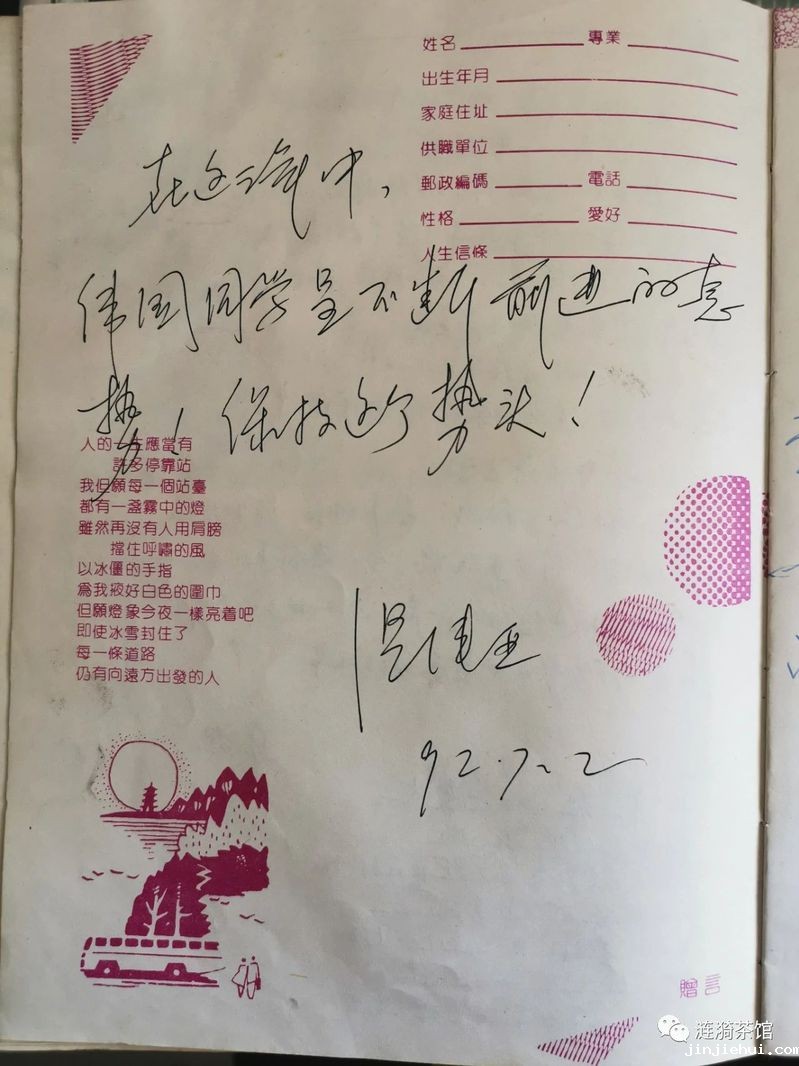 姓名 專業
出生年月
家庭住址
供職單位
郵政編碼 電話
性格 愛好
人生信條
在这三年中，
伟国同学呈不断前进的态
势！保持这个势头！
人的一生應當有
許多停靠站
我但願每一個站臺
都有一盞霧中的燈
雖然再沒有人用肩膀
擋住呼嘯的風
以冰僵的手指
爲我掖好白色的圍巾
但願燈象今夜一樣亮着吧
即使冰雪封住了
每一條道路
仍有向遠方出發的人
92.7.2
贈言
涟漪茶馆
jinjiehui.com